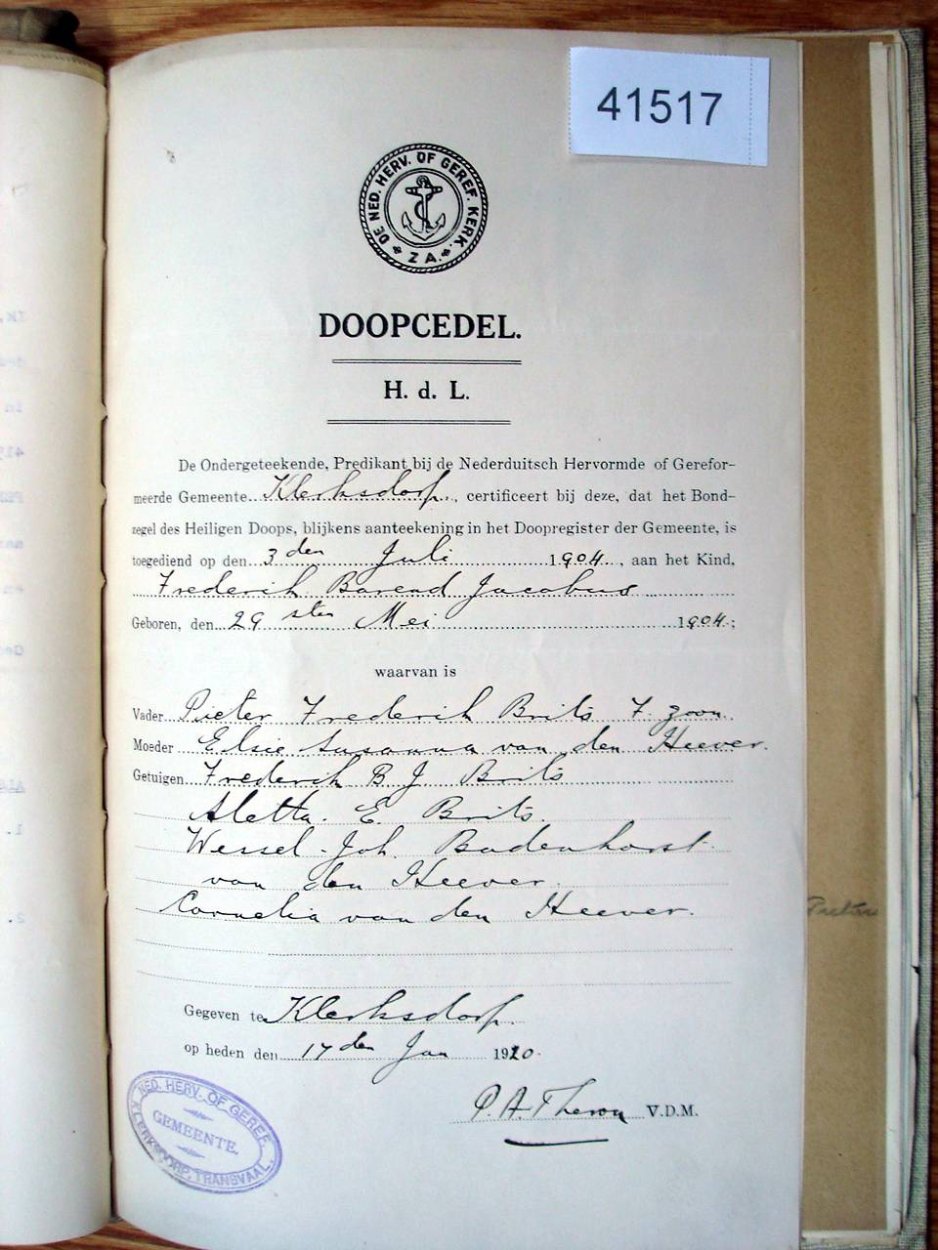 41517
DE NED. HERV. OF GEREF. KERK.
Z A.
DOOPCEDEL.
H. d. L.
De Ondergeteekende, Predikant bij de Nederduitsch Hervormde of Gerefor-
meerde Gemeente Klerksdorp, certificeert bij deze, dat het Bond-
zegel des Heiligen Doops, blijkens aanteekening in het Doopregister der Gemeente, is
toegediend op den 3 den Juli 1904, aan het Kind,
Frederik Barend Jacobus
Geboren, den 29 sten Mei 1904;
waarvan is
Vader Pieter Frederik Brits F. zoon
Moeder Elsie Susanna van den Heever.
Getuigen Frederik B J. Brits
Aletta. E. Brits.
Wessel. Joh. Badenhorst
van den Heever.
Cornelia van den Heever.
Gegeven te Klerksdorp.
op heden den 17 den Jan 1920.
P. A. Theron V.D.M.
NED. HERV. OF GEREF.
GEMEENTE.
KLERKSDORP, TRANSVAAL.